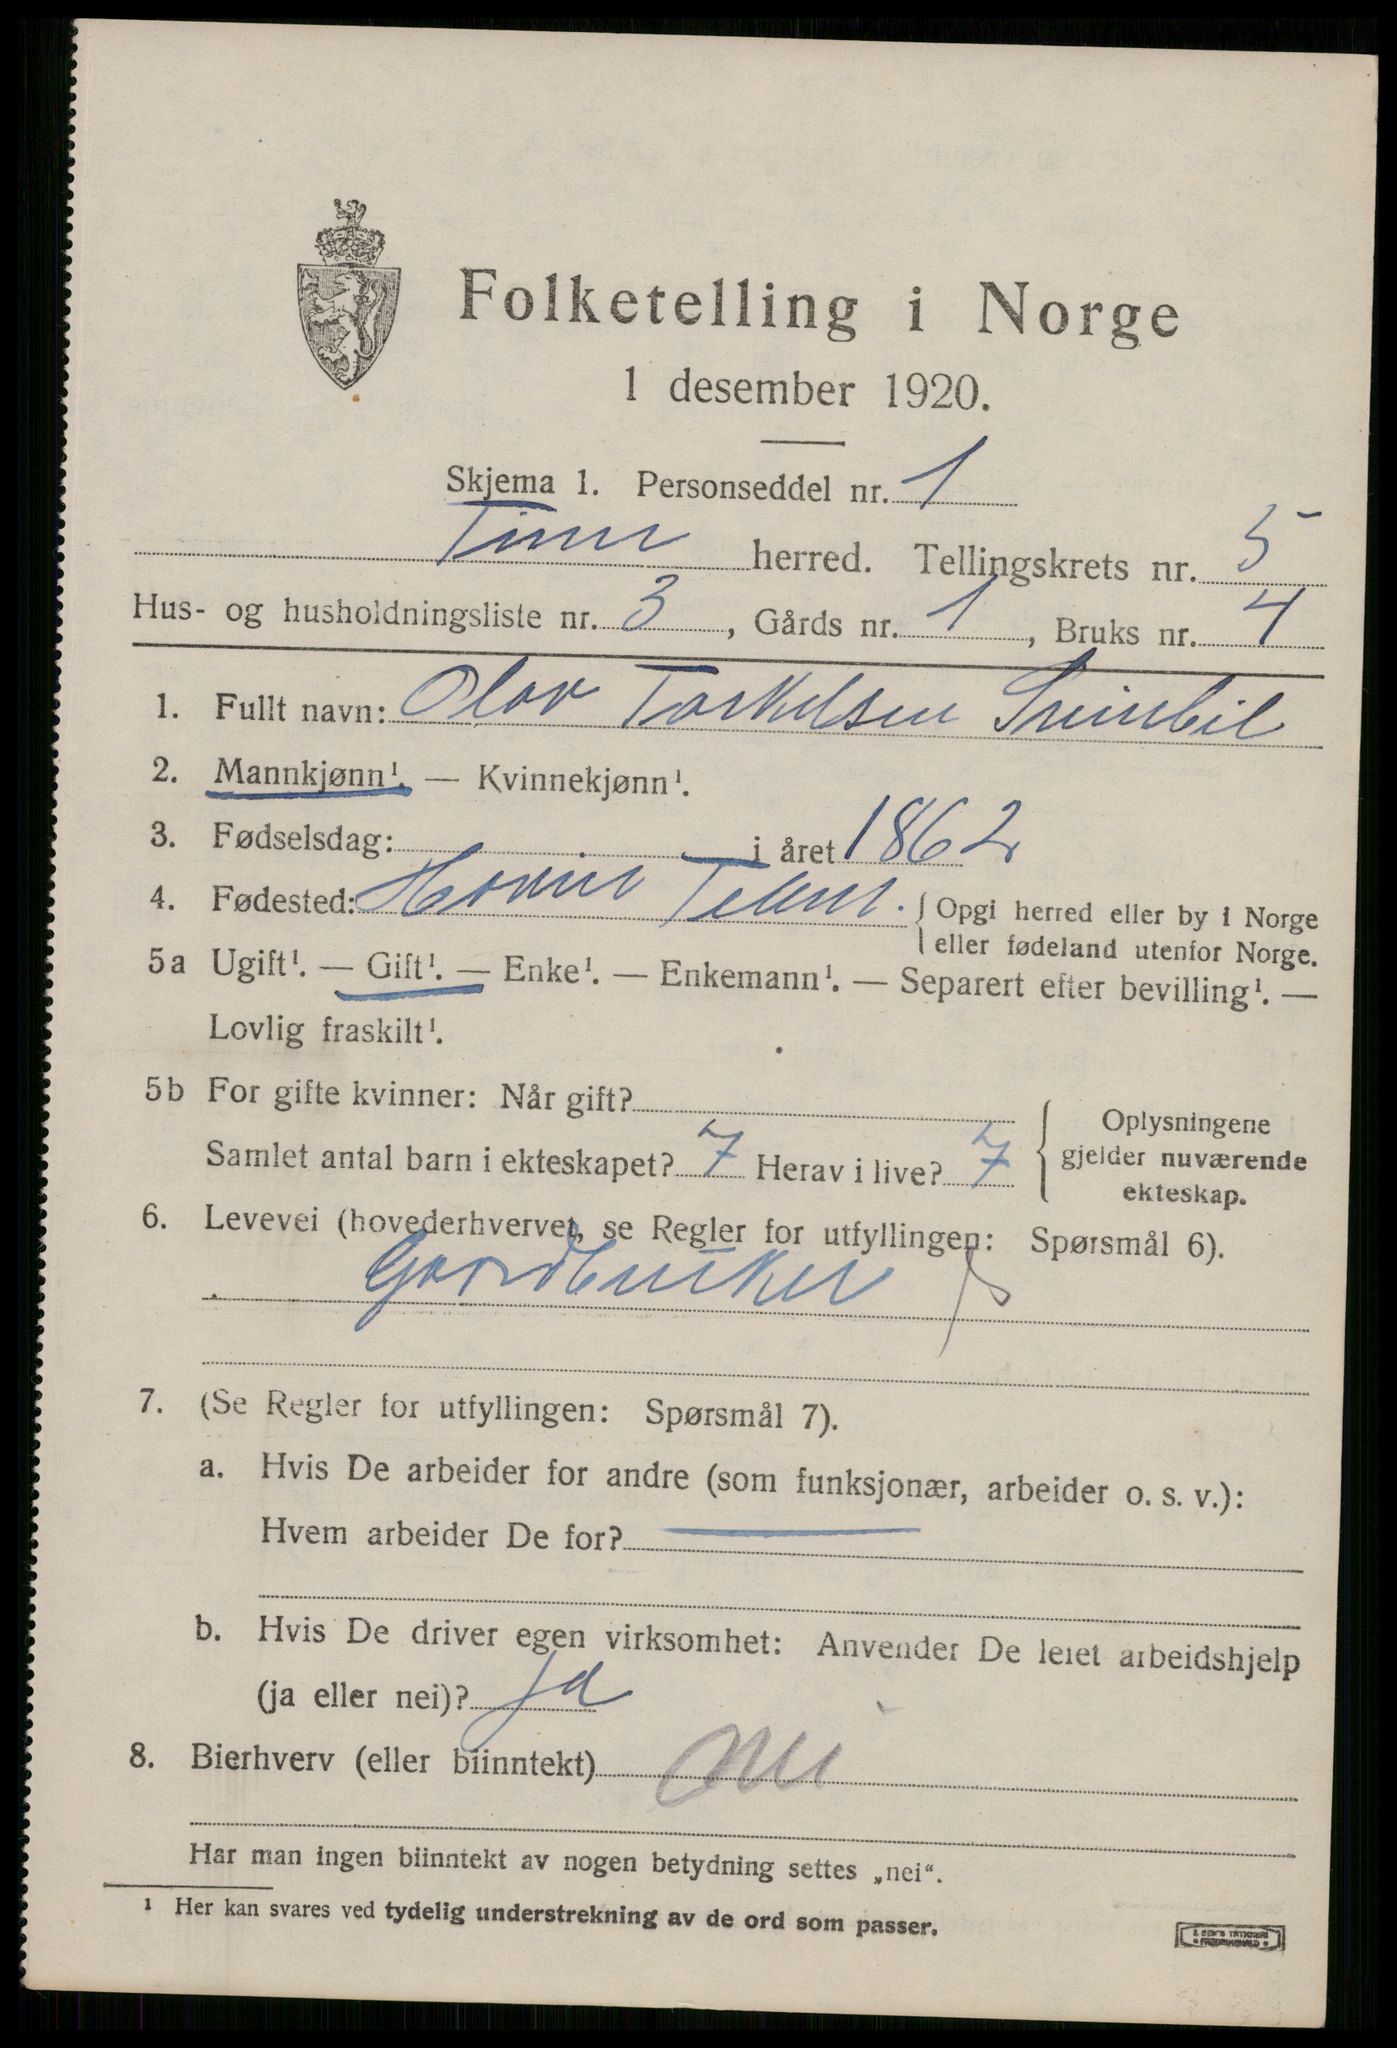 Folketelling i Norge
1 desember 1920.
Skjema 1. Personseddel nr. 1
Tinn herred. Tellingskrets nr. 5
Hus- og husholdningsliste nr. 3, Gårds nr. 1, Bruks nr. 4
1. Fullt navn: Olav Torkelsen
2. Mannkjønn¹. — Kvinnekjønn¹.
3. Fødselsdag: i året 1862
4. Fødested: Hovin Telem. Opgi herred eller by i Norge
eller fødeland utenfor Norge.
5a Ugift¹. — Gift¹. — Enke¹. — Enkemann¹. — Separert efter bevilling¹. —
Lovlig fraskilt¹.
5b For gifte kvinner: Når gift?
Samlet antal barn i ekteskapet? 7 Herav i live? 7
Oplysningene
gjelder nuværende
ekteskap.
6. Levevei (hovederhvervet, se Regler for utfyllingen: Spørsmål 6).
Gaardbruker
7. (Se Regler for utfyllingen: Spørsmål 7).
a. Hvis De arbeider for andre (som funksjonær, arbeider o. s. v.):
Hvem arbeider De for?
b. Hvis De driver egen virksomhet: Anvender De leiet arbeidshjelp
(ja eller nei)? Ja
8. Bierhverv (eller biinntekt) nei
Har man ingen biinntekt av nogen betydning settes „nei“.
¹ Her kan svares ved tydelig understrekning av de ord som passer.